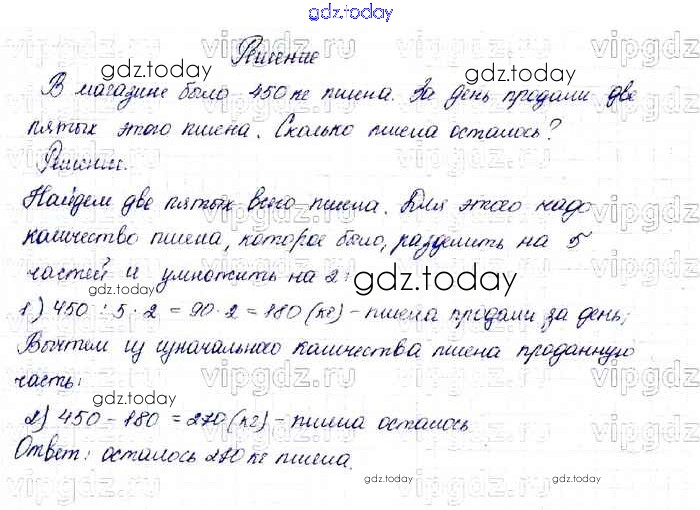 gdz.today
Решение
В магазине было 450 кг пшена. За день продали две
пятых этого пшена. Сколько пшена осталось?
Решение.
Найдем две пятых всего пшена. Для этого надо
количество пшена, которое было, разделить на 5
частей и умножить на 2:
1) 450 : 5 · 2 = 90 · 2 = 180 (кг) - пшена продали за день;
Вычтем из изначального количества пшена проданную
часть:
2) 450 - 180 = 270 (кг) - пшена осталось
Ответ: осталось 270 кг пшена.
gdz.today
gdz.today
gdz.today
gdz.today
gdz.today
gdz.today
gdz.today
gdz.today
vipgdz.ru